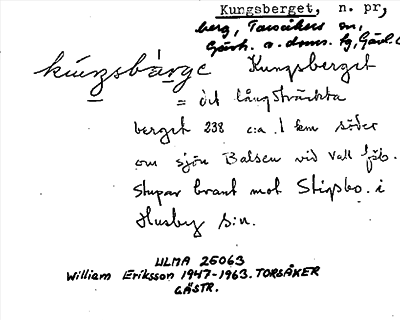 Kungsberget, n. pr,
berg, Torsåkers sn,
Gästr. o. doms. hg, Gävl.
kúngsbárge Kungsberget
= det långsträckta
berget 238 c:a 1 km söder
om sjön Balsen vid Vall fjb.
Stupar brant mot Stigsbo i
Husby s:n.
ULMA 25063
William Eriksson 1947-1963. TORSÅKER
GÄSTR.